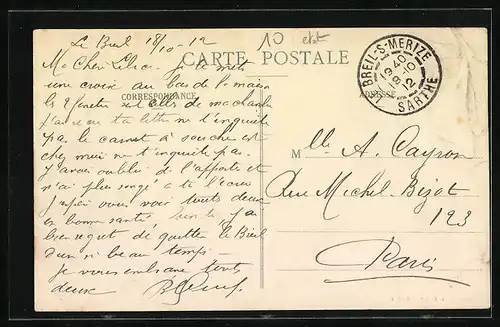 Le Breil 18/10-12
10
CARTE POSTALE
LE BREIL-S-MERIZE
19 40
18 -10
12
SARTHE
je te mets
une croix au bas de la maison
CORRESPONDANCE
ADRESSE
le 2 fenêtre est celle de ma chambre
j'ai reçu ta lettre ne t'inquiète
pas le carnet à souche est
chez moi ne t'inquiète pas.
J'avais oublié de l'apporter et
n'ai plus songé à te l'écrire
M lle A. Cayron
Rue Michel Bizot
123
Paris
j'espère vous voir toutes deux
en bonne santé
bien regret de quitter le Breil
beau temps -
je vous embrasse toutes
deux